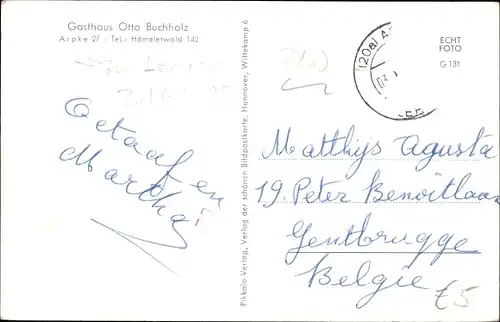 Gasthaus Otto Buchholz
Arpke 27 - Tel.: Hämelerwald 142
Octaaf en
Martha
Pikkolo-Verlag, Verlag der schönen Bildpostkarte, Hannover, Wittekamp 6
(20a) A
ECHT
FOTO
G 131
Matthijs Agusta
19. Peter Benoitlaan
Gentbrugge
Belgie
£5